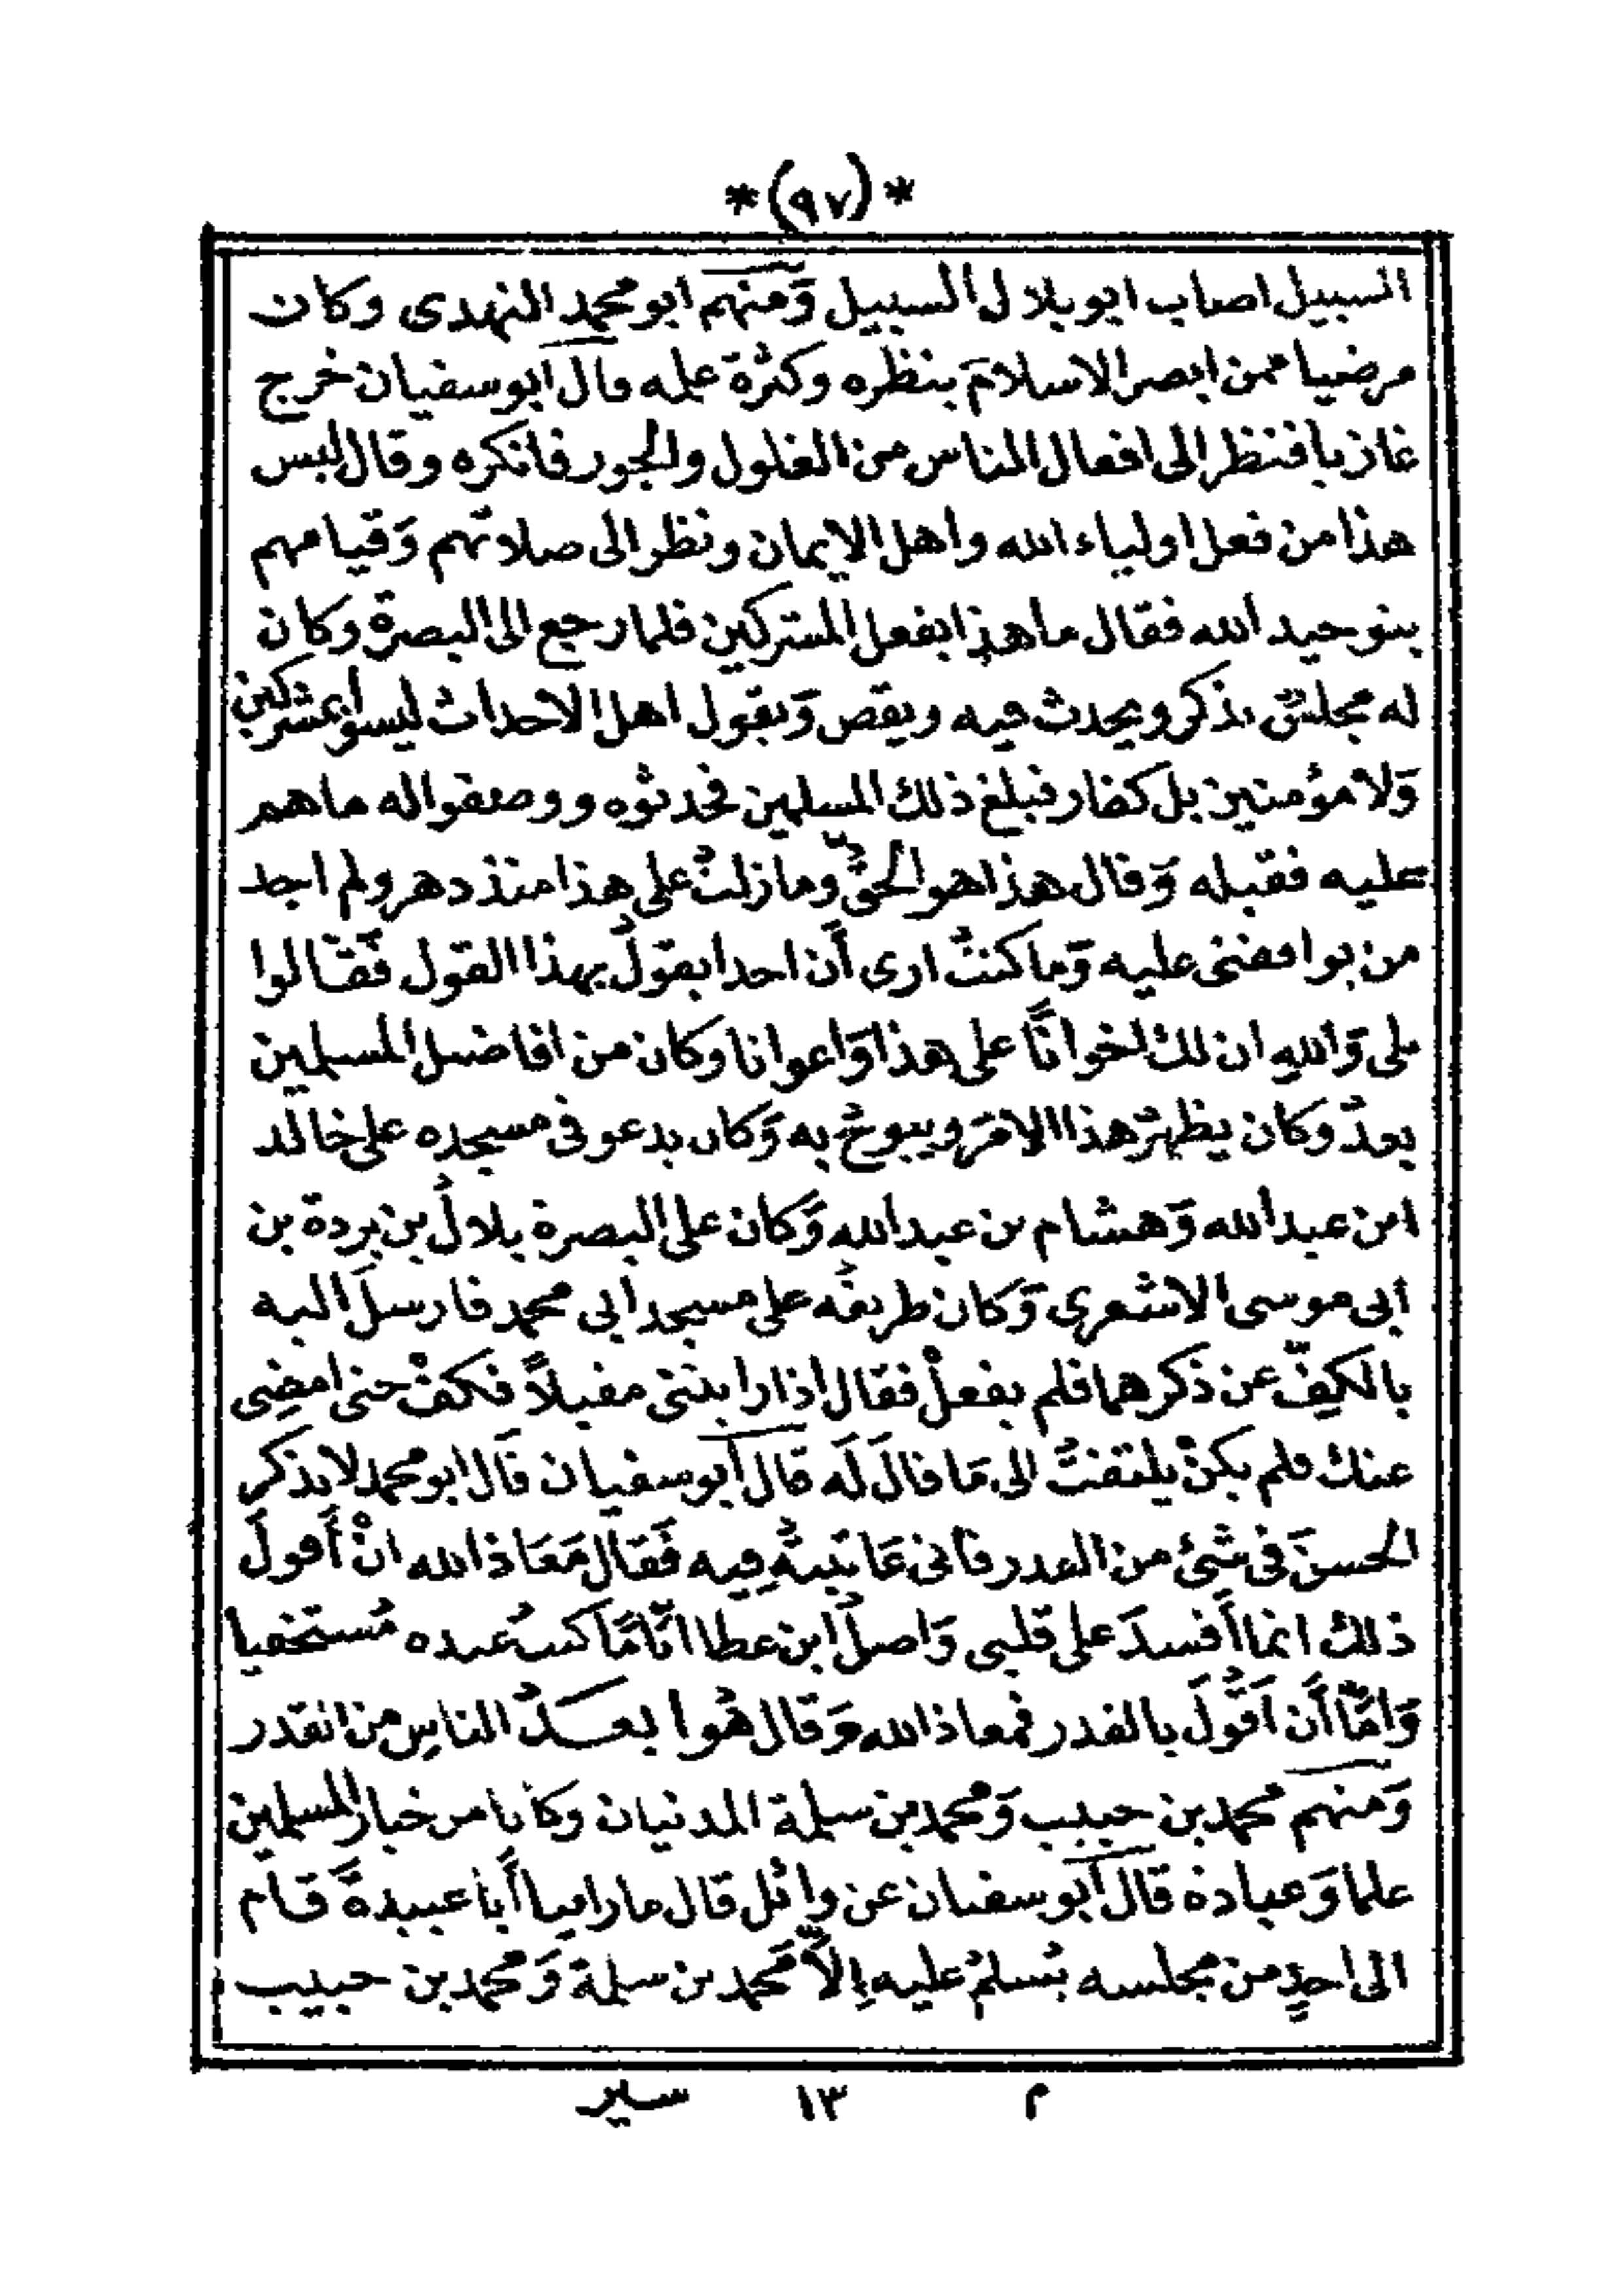 *(٩٧)*
السبيل اصاب ابو بلال السبيل وَمنهم ابو محمد النهدى وكان
مرضيا ممن ابصر الاسلامَ بنظره وكثرة علمه قال ابو سفيان خرج
غازيا فنظر الى افعال الناس من الغلول والجور فانكره وقال ليس
هذا من فعل اولياء الله واهل الايمان ونظر الى صلاتهم وَقيامهم
بتوحيد الله فقال ما هذا بفعل المشركين فلما رجع الى البصرة وكان
له مجلسٌ يذكر ويحدث فيه ويقص وَيقول اهل الاحداث ليسوا بمشركين
وَلا مؤمنين بل كفار فبلغ ذلك المسلمين فحدثوه ووصفوا له ما هم
عليه فقبله وَقال هذا هو الحقُّ وما زلتُ على هذا منذ دهر ولم اجد
من يوافقنى عليه وَما كنتُ ارى أَن احدا يقولُ بهذا القول فَقالوا
بلى وَالله ان لك اخوانًا على هذا وَاعوانا وكان من افاضل المسلمين
بعدُ وكان يظهرُ هذا الامرَ ويبوحُ به وَكان يدعو فى مسجده على خالد
ابن عبد الله وَهشام بن عبد الله وَكان على البصرة بلالُ بن بردة بن
ابى موسى الاشعرى وَكان طريقُه على مسجد ابى محمد فارسلَ اليه
بالكفِّ عن ذكرهما فلم يفعلْ فقال اذا رايتنى مقبلاً فكفْ حتى امضى
عنك فلم يكنْ يلتفتُ الى مَا قالَ لَه قالَ أبو سفيان قَال ابو محمد لا يذكر
الحسنَ فى شئ من القدر فانى عَاتبتُه فِيه فَقال مَعَاذ الله انْ أَقولَ
ذلك انما أَفسدَ على قلبى وَاصلُ ابن عطا انَّا مَا كنت عنده مُستخفيا
وَامَّا أَن اَقُولَ بالقدر فمعاذ الله وَقال هُوا بعــدُ الناسِ من القدر
وَمنهم محمد بن حبيب وَمحمد بن سلمة المدنيان وكانا من خيار المسلمين
علما وَعبادة قال أبو سفيان عن وائل قال ما راينا أَبا عبيدةَ قام
الى احدٍ من مجلسه يُسلمُ عليه اِلاَّ مُحَمد بن سلمة وَمحمد بن حبيب
م ١٣ سير